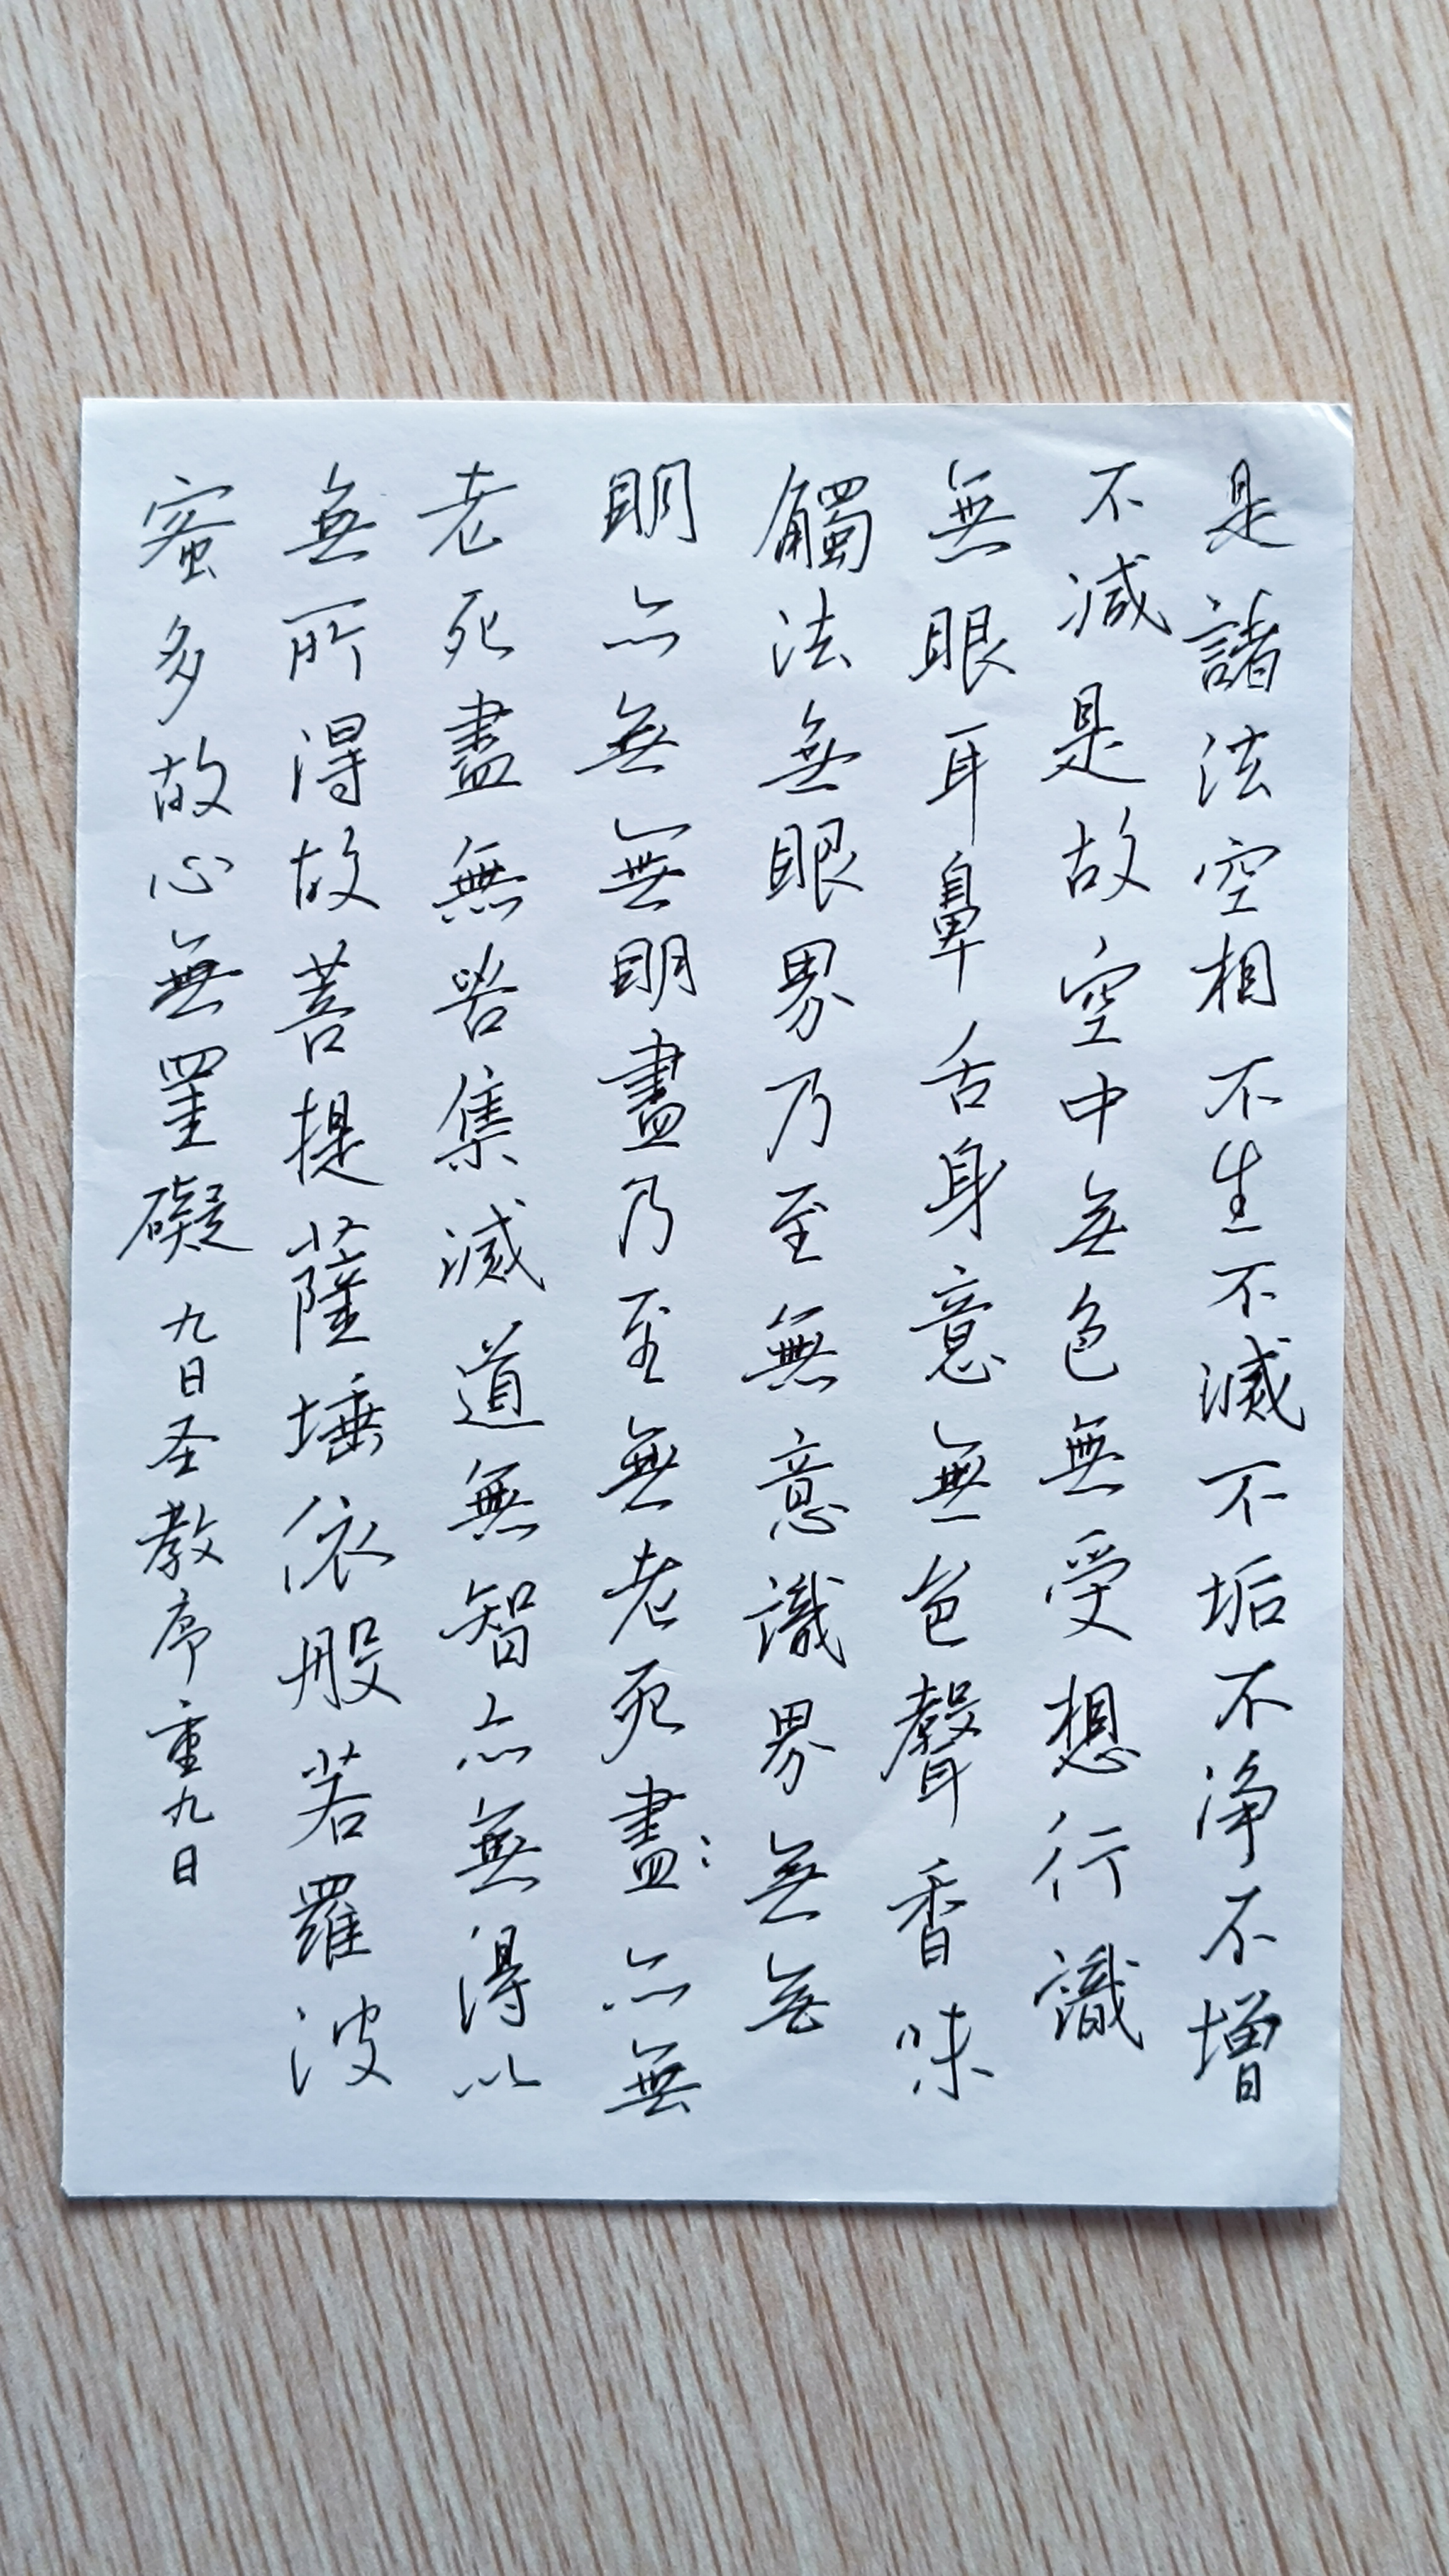 是諸法空相不生不滅不垢不净不增
不减是故空中無色無受想行識
無眼耳鼻舌身意無色聲香味
觸法無眼界乃至無意識界無無
明亦無無明盡乃至無老死盡亦無
老死盡無苦集滅道無智亦無得以
無所得故菩提薩埵依般若羅波
蜜多故心無罣礙 九日圣教序重九日